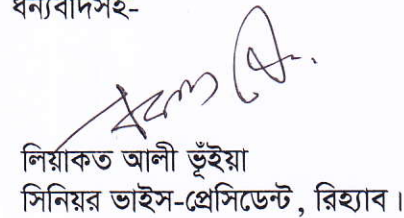 ধন্যবাদসহ-
লিয়াকত আলী ভূঁইয়া
সিনিয়র ভাইস-প্রেসিডেন্ট, রিহ্যাব।